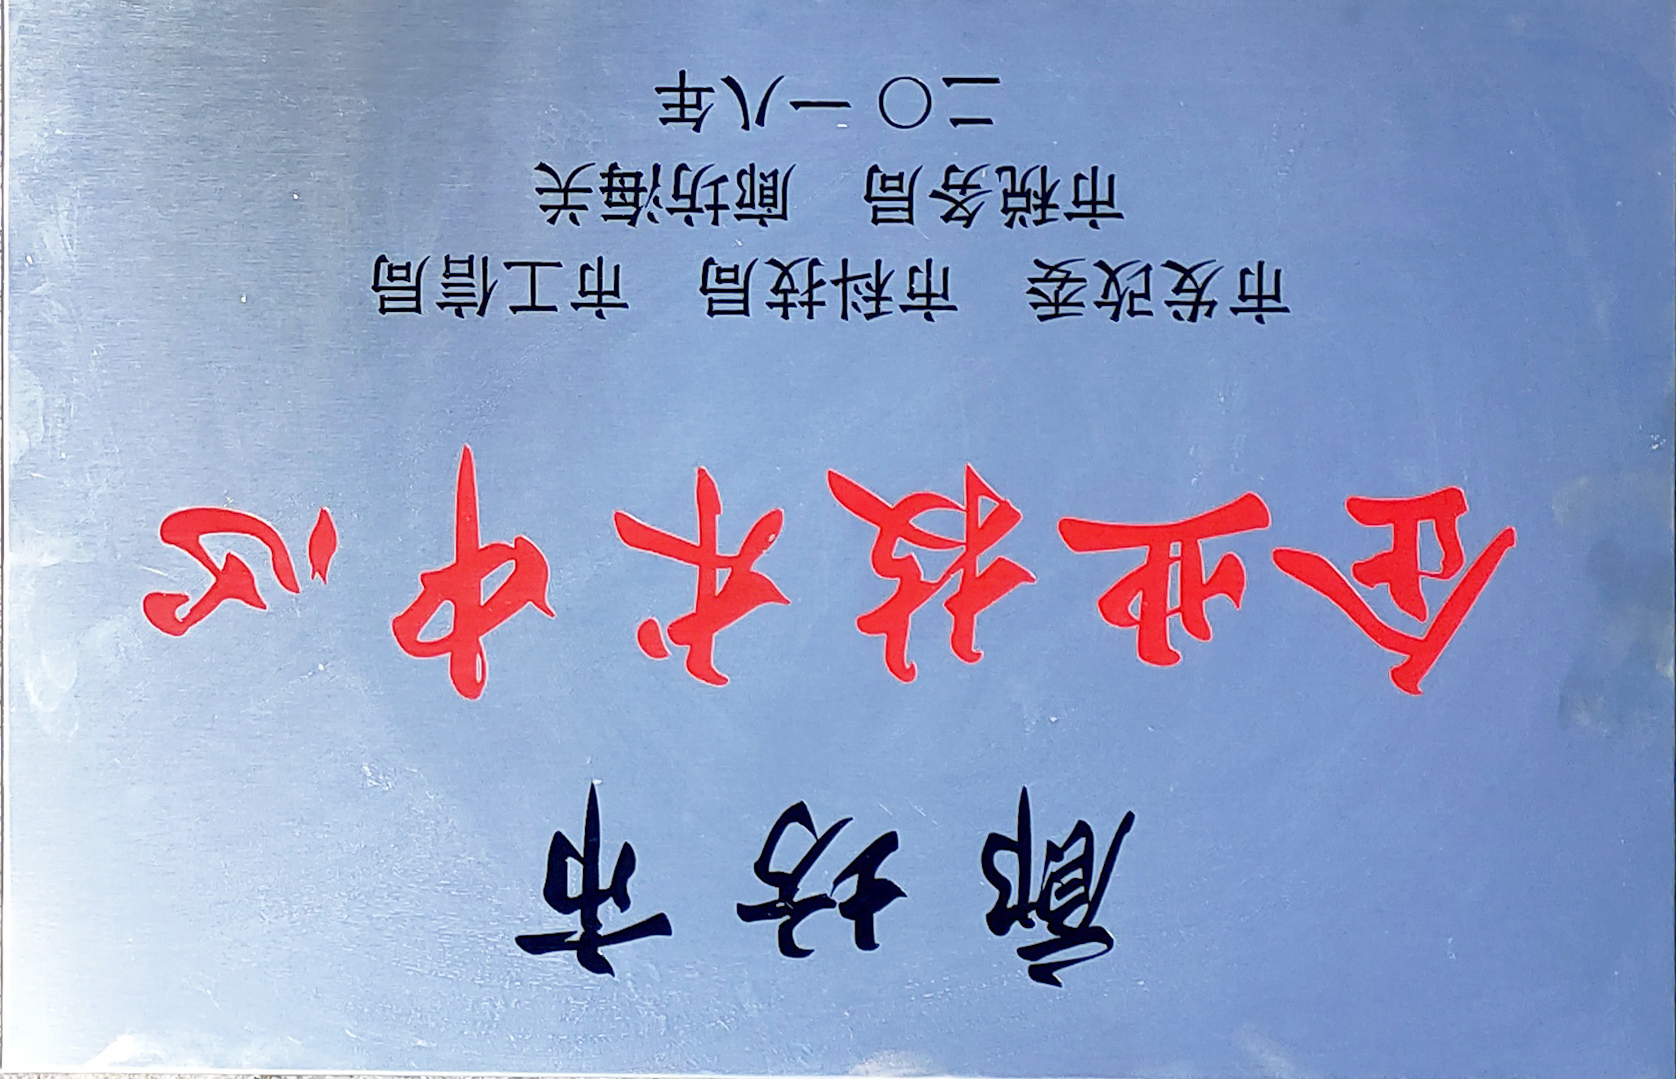 廊坊市
企业技术中心
市发改委 市科技局 市工信局
市税务局 廊坊海关
二〇一八年